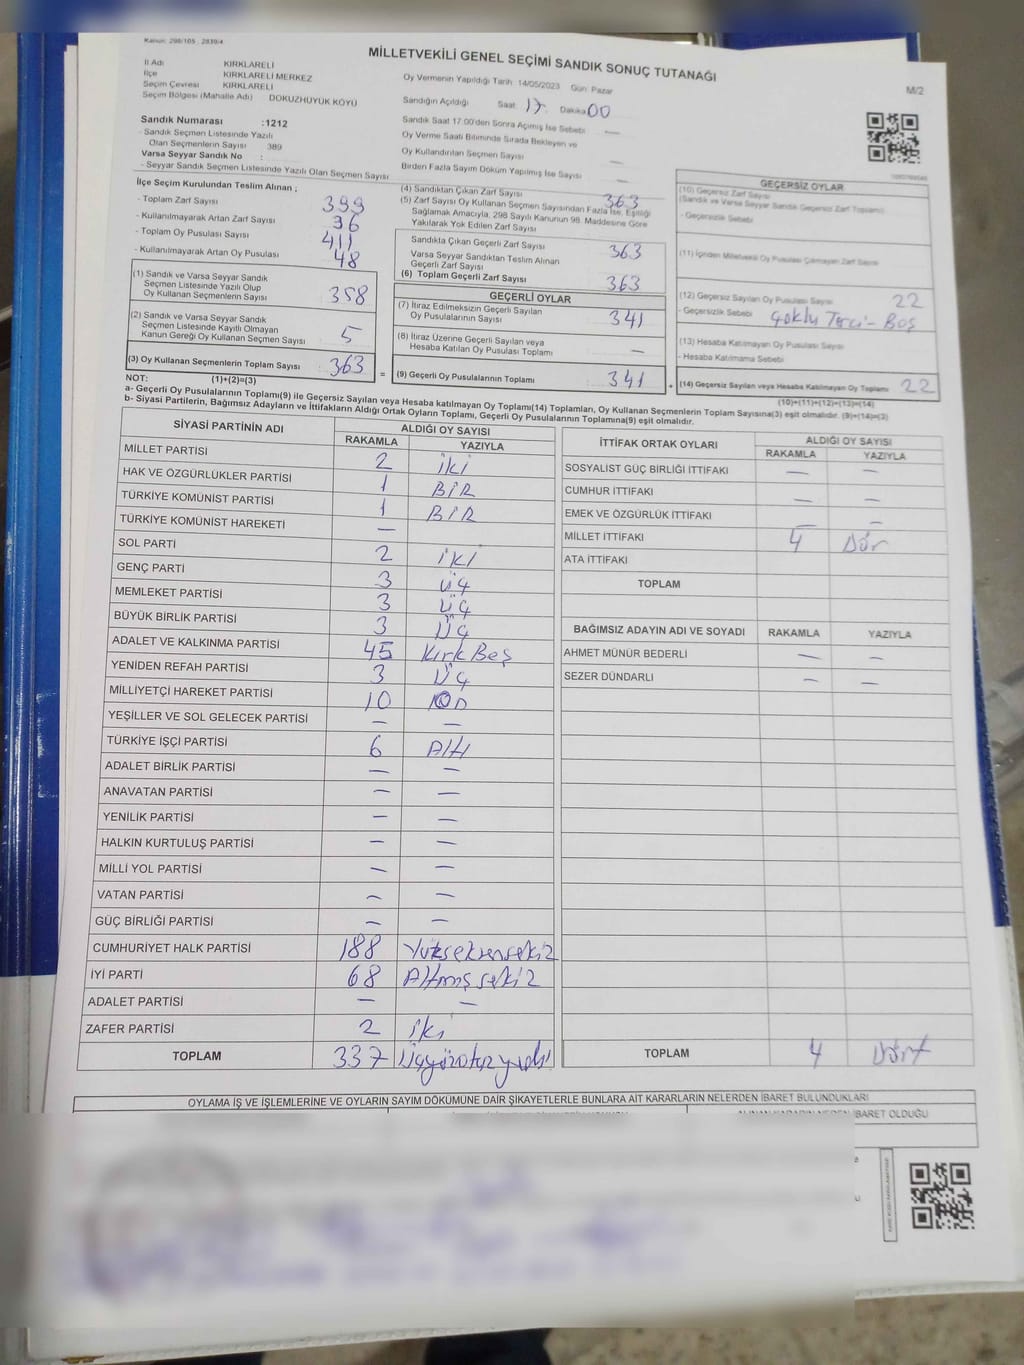 Kanun: 298/105 , 2839/4
MİLLETVEKİLİ GENEL SEÇİMİ SANDIK SONUÇ TUTANAĞI
M/2
İl Adı KIRKLARELİ
İlçe KIRKLARELİ MERKEZ
Seçim Çevresi KIRKLARELİ
Seçim Bölgesi (Mahalle Adı) DOKUZHÜYÜK KÖYÜ
Oy Vermenin Yapıldığı Tarih: 14/05/2023 Gün: Pazar
Sandığın Açıldığı Saat 17. Dakika 00
Sandık Saat 17:00'den Sonra Açılmış İse Sebebi —
Oy Verme Saati Bitiminde Sırada Bekleyen ve
Oy Kullandırılan Seçmen Sayısı —
Birden Fazla Sayım Döküm Yapılmış İse Sayısı —
Sandık Numarası :1212
- Sandık Seçmen Listesinde Yazılı
Olan Seçmenlerin Sayısı 389
Varsa Seyyar Sandık No :
- Seyyar Sandık Seçmen Listesinde Yazılı Olan Seçmen Sayısı
İlçe Seçim Kurulundan Teslim Alınan ;
- Toplam Zarf Sayısı 399
- Kullanılmayarak Artan Zarf Sayısı 36
- Toplam Oy Pusulası Sayısı 411
- Kullanılmayarak Artan Oy Pusulası 48
(1) Sandık ve Varsa Seyyar Sandık
Seçmen Listesinde Yazılı Olup
Oy Kullanan Seçmenlerin Sayısı 358
(2) Sandık ve Varsa Seyyar Sandık
Seçmen Listesinde Kayıtlı Olmayan
Kanun Gereği Oy Kullanan Seçmen Sayısı 5
(3) Oy Kullanan Seçmenlerin Toplam Sayısı 363
(4) Sandıktan Çıkan Zarf Sayısı 363
(5) Zarf Sayısı Oy Kullanan Seçmen Sayısından Fazla İse, Eşitliği
Sağlamak Amacıyla, 298 Sayılı Kanunun 98. Maddesine Göre
Yakılarak Yok Edilen Zarf Sayısı
Sandıkta Çıkan Geçerli Zarf Sayısı 363
Varsa Seyyar Sandıktan Teslim Alınan
Geçerli Zarf Sayısı
(6) Toplam Geçerli Zarf Sayısı 363
GEÇERLİ OYLAR
(7) İtiraz Edilmeksizin Geçerli Sayılan
Oy Pusulalarının Sayısı 341
(8) İtiraz Üzerine Geçerli Sayılan veya
Hesaba Katılan Oy Pusulası Toplamı —
= (9) Geçerli Oy Pusulalarının Toplamı 341
GEÇERSİZ OYLAR
(10) Geçersiz Zarf Sayısı
(Sandık ve Varsa Seyyar Sandık Geçersiz Zarf Toplamı)
- Geçersizlik Sebebi
(11) İçinden Milletvekili Oy Pusulası Çıkmayan Zarf Sayısı
(12) Geçersiz Sayılan Oy Pusulası Sayısı 22
- Geçersizlik Sebebi Çoklu Terci - Boş
(13) Hesaba Katılmayan Oy Pusulası Sayısı
- Hesaba Katılmama Sebebi
+ (14) Geçersiz Sayılan veya Hesaba Katılmayan Oy Toplamı 22
NOT: (1)+(2)=(3)
(10)+(11)+(12)+(13)=(14)
a- Geçerli Oy Pusulalarının Toplamı(9) ile Geçersiz Sayılan veya Hesaba katılmayan Oy Toplamı(14) Toplamları, Oy Kullanan Seçmenlerin Toplam Sayısına(3) eşit olmalıdır. (9)+(14)=(3)
b- Siyasi Partilerin, Bağımsız Adayların ve İttifakların Aldığı Ortak Oyların Toplamı, Geçerli Oy Pusulalarının Toplamına(9) eşit olmalıdır.
SİYASİ PARTİNİN ADI ALDIĞI OY SAYISI
RAKAMLA YAZIYLA
MİLLET PARTİSİ 2 iki
HAK VE ÖZGÜRLÜKLER PARTİSİ 1 BİR
TÜRKİYE KOMÜNİST PARTİSİ 1 BİR
TÜRKİYE KOMÜNİST HAREKETİ —
SOL PARTİ 2 İKİ
GENÇ PARTİ 3 üç
MEMLEKET PARTİSİ 3 üç
BÜYÜK BİRLİK PARTİSİ 3 üç
ADALET VE KALKINMA PARTİSİ 45 Kırk Beş
YENİDEN REFAH PARTİSİ 3 üç
MİLLİYETÇİ HAREKET PARTİSİ 10 On
YEŞİLLER VE SOL GELECEK PARTİSİ — —
TÜRKİYE İŞÇİ PARTİSİ 6 Altı
ADALET BİRLİK PARTİSİ — —
ANAVATAN PARTİSİ — —
YENİLİK PARTİSİ — —
HALKIN KURTULUŞ PARTİSİ — —
MİLLİ YOL PARTİSİ — —
VATAN PARTİSİ — —
GÜÇ BİRLİĞİ PARTİSİ — —
CUMHURİYET HALK PARTİSİ 188 Yükseksensekiz
İYİ PARTİ 68 Altmış sekiz
ADALET PARTİSİ — —
ZAFER PARTİSİ 2 iki
TOPLAM 337 Üçyüzotuzyedi
İTTİFAK ORTAK OYLARI ALDIĞI OY SAYISI
RAKAMLA YAZIYLA
SOSYALİST GÜÇ BİRLİĞİ İTTİFAKI — —
CUMHUR İTTİFAKI — —
EMEK VE ÖZGÜRLÜK İTTİFAKI — —
MİLLET İTTİFAKI 4 Dör
ATA İTTİFAKI
TOPLAM
BAĞIMSIZ ADAYIN ADI VE SOYADI RAKAMLA YAZIYLA
AHMET MÜNÜR BEDERLİ — —
SEZER DÜNDARLI — —
TOPLAM 4 Dört
OYLAMA İŞ VE İŞLEMLERİNE VE OYLARIN SAYIM DÖKÜMÜNE DAİR ŞİKAYETLERLE BUNLARA AİT KARARLARIN NELERDEN İBARET BULUNDUKLARI
ALINAN KARARIN NEDEN İBARET OLDUĞU